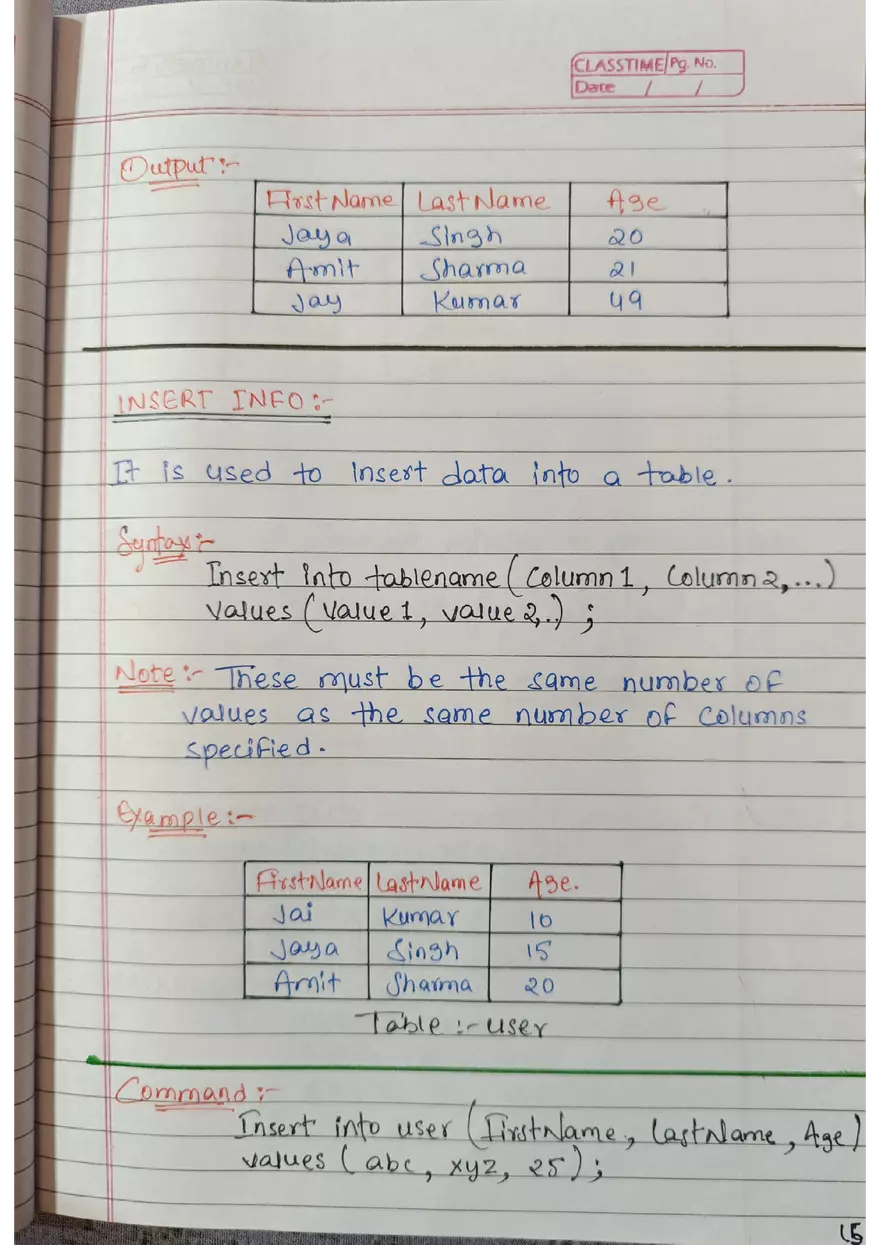 CLASSTIME Pg. No.
Date / /
Output :-
FirstName LastName Age
Jaya Singh 20
Amit Sharma 21
Jay Kumar 49
INSERT INFO :-
It is used to insert data into a table.
Syntax :-
Insert into tablename (Column 1, Column 2,...)
Values (Value 1, value 2,..) ;
Note :- These must be the same number of
values as the same number of columns
specified.
Example :-
FirstName LastName Age.
Jai Kumar 10
Jaya Singh 15
Amit Sharma 20
Table :- user
Command :-
Insert into user (FirstName, LastName, Age)
values (abc, xyz, 25);
15